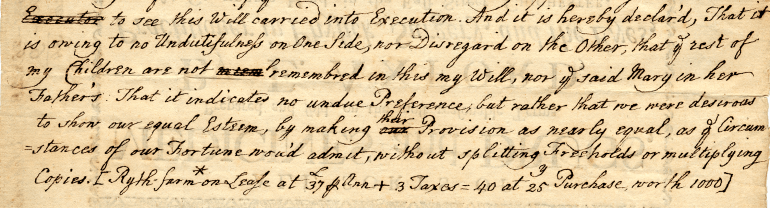 Executor to see this Will carried into Execution. And it is hereby declar'd, That it
is owing to no Undutifulness on One Side, nor Disregard on the Other, that ye rest of
my Children are not remembred in this my Will, nor ye said Mary in her
Father's: That it indicates no undue Preference, but rather that we were desirous
to show our equal Esteem, by making their Provision as nearly equal, as ye Circum
=stances of our Fortune wou'd admit, without splitting Freeholds or multiplying
Copies. [Ryth-farm* on Lease at 37 Ann + 3 Taxes = 40 at 25 Purchase, worth 1000]